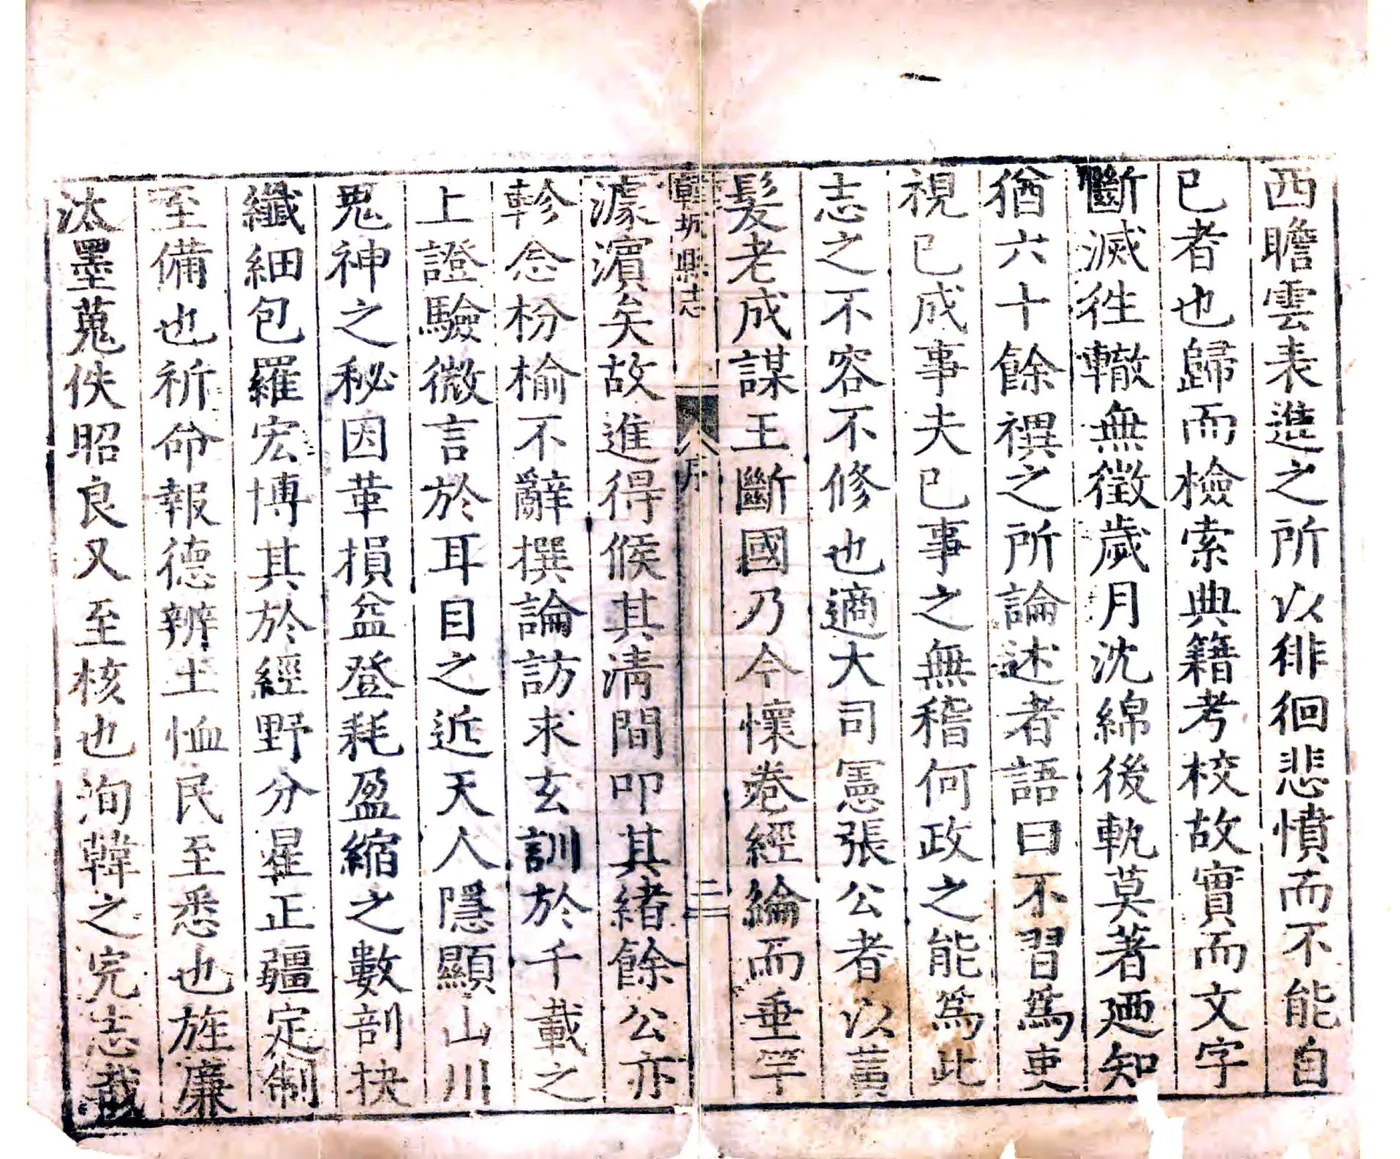 西瞻雲表進之所以徘徊悲憤而不能自
已者也歸而檢索典籍考校故實而文字
斷滅徃轍無徵歲月沈綿後軌莫著廼知
猶六十餘禩之所論述者語曰不習爲吏
視已成事夫已事之無稽何政之能爲此
志之不容不修也適大司寇張公者以黃
髮老成謀王斷國乃今懷卷經綸而垂竿
韓城縣志
序
二
濠濵矣故進得候其清間叩其緒餘公亦
軫念枌榆不辭撰論訪求玄訓於千載之
上證驗微言於耳目之近天人隱顯山川
鬼神之秘因革損益登耗盈縮之數剖抉
纖細包羅宏博其於經野分星正疆定制
至備也祈命報德辨土恤民至悉也旌廉
汰墨蒐佚昭良又至核也洵韓之完志哉